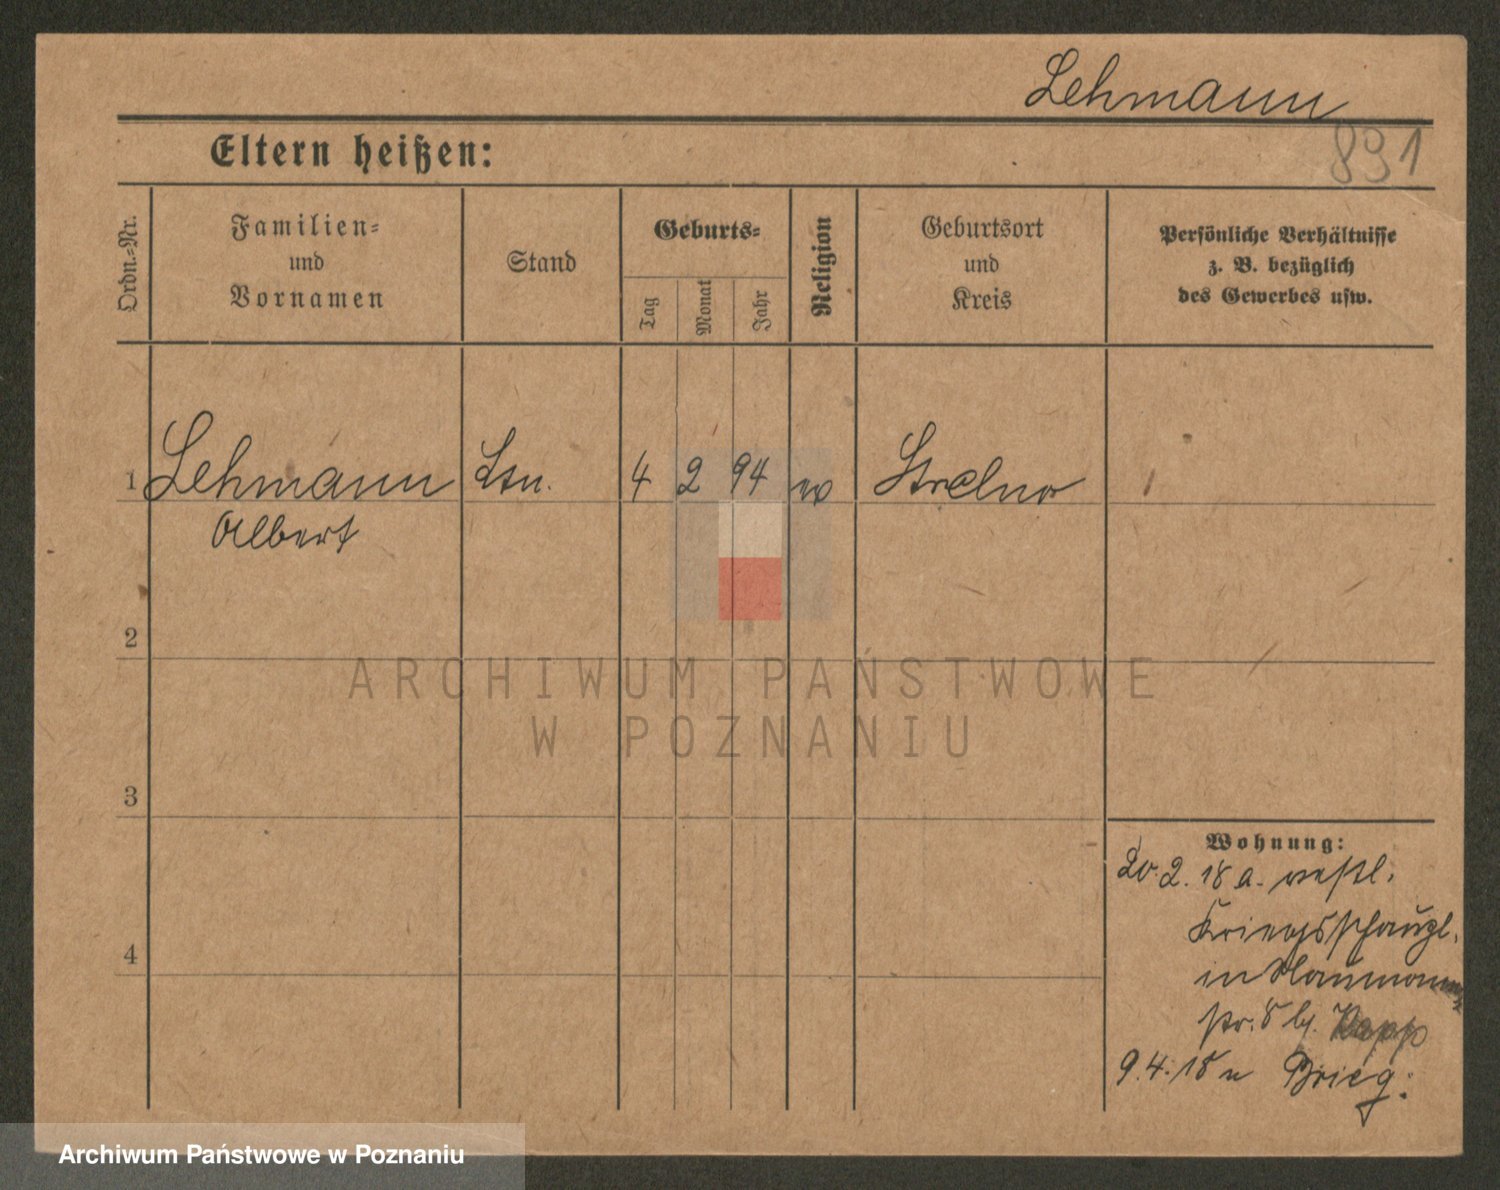 Lehmann
Eltern heißen:
891
Ordn.-Nr.
Familien- und Vornamen
Stand
Geburts-
Tag
Monat
Jahr
Religion
Geburtsort und Kreis
Persönliche Verhältnisse
z. B. bezüglich
des Gewerbes usw.
1 Lehmann Ltn. 4 2 94 ev Strelno
Albert
2
ARCHIWUM PAŃSTWOWE
W POZNANIU
3
Wohnung:
20.2.18 a. westl.
Kriegsschaupl.
in Naumann
str. 8 b.
4
9.4.18 n Brieg.
Archiwum Państwowe w Poznaniu